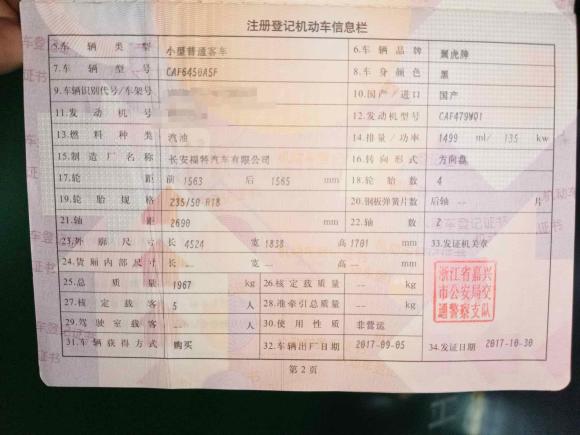 注册登记机动车信息栏
5.车辆类型 小型普通客车 6.车辆品牌 翼虎牌
7.车辆型号 CAF6450A5F 8.车身颜色 黑
9.车辆识别代号/车架号 10.国产/进口 国产
11.发动机号 12.发动机型号 CAF479WQ1
13.燃料种类 汽油 14.排量/功率 1499 ml/ 135 kw
15.制造厂名称 长安福特汽车有限公司 16.转向形式 方向盘
17.轮距 前 1563 后 1565 mm 18.轮胎数 4
19.轮胎规格 235/50 R18 20.钢板弹簧片数 后轴 -- 片
21.轴距 2690 mm 22.轴数 2
23.外廓尺寸 长 4524 宽 1838 高 1701 mm 33.发证机关章
24.货厢内部尺寸 长 -- 宽 -- 高 -- mm
25.总质量 1967 kg 26.核定载质量 -- kg
27.核定载客 5 人 28.准牵引总质量 -- kg
29.驾驶室载客 -- 人 30.使用性质 非营运
31.车辆获得方式 购买 32.车辆出厂日期 2017-09-05 34.发证日期 2017-10-30
浙江省嘉兴
市公安局交
通警察支队
第2页